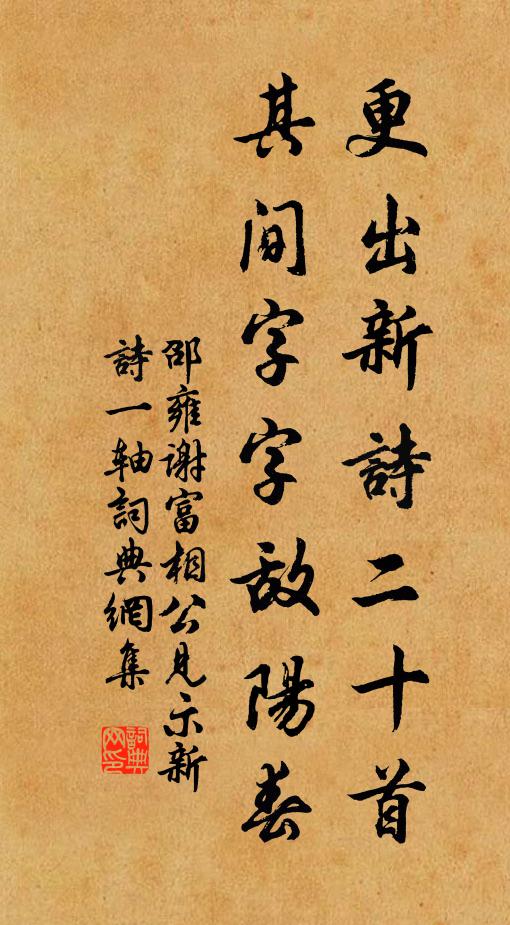 更出新詩二十首
其间字字敌陽春
邵雍谢富相公見示新
詩一轴詞典網集
詞典網印